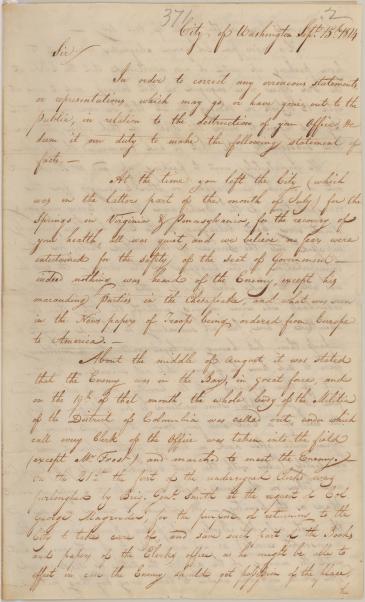 371 2
City of Washington Sept. 15th 1814
Sir,
In order to correct any erroneous statements
or representations which may go, or have gone out to the
Public, in relation to the destruction of your Office, We
deem it our duty to make the following statement of
facts. —
At the time you left the City (which
was in the latter part of the month of July) for the
Springs in Virginia & Pennsylvania, for the recovery of
your health, all was quiet, and we believe no fears were
entertained for the safety of the Seat of Government —
indeed nothing was heard of the Enemy, except his
marauding Parties in the Chesapeake, and what was seen
in the News papers of Troops being ordered from Europe
to America. —
About the middle of August it was stated
that the Enemy was in the Bay, in great force, and
on the 19th of that month the whole body of the Militia
of the District of Columbia was called out, under which
call every Clerk of the Office was taken into the field
(except Mr Frost) and marched to meet the Enemy.
On the 21st the first of the undersigned Clerks was
furloughed by Brig. Genl. Smith at the request of Col
George Magruder, for the purpose of returning to the
City to take care of, and save such part of the Books
and papers of the Clerks office, as he might be able to
effect in case the Enemy should get possession of the place,